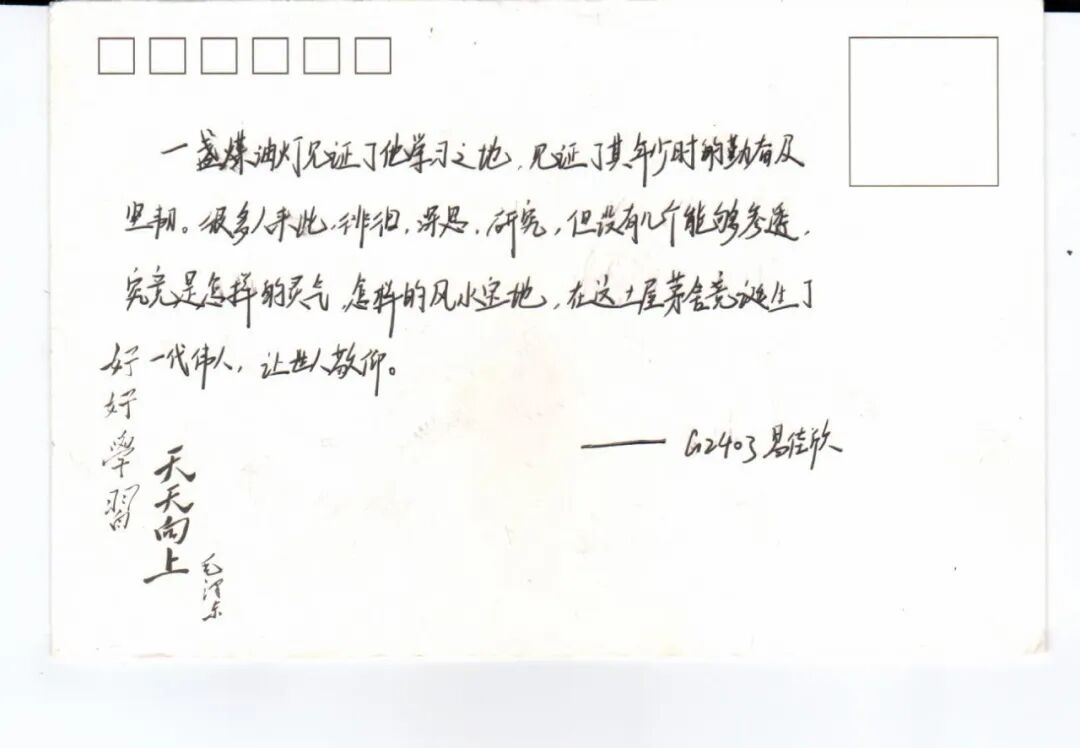 一盏煤油灯见证了他学习之地，见证了其年少时的勤奋及
坚韧。很多人来此，徘徊，深思，研究，但没有几个能够参透，
究竟是怎样的灵气，怎样的风水宝地，在这土屋茅舍竟诞生了
一代伟人，让世人敬仰。
—— G2403易佳欣
好好學習
天天向上
毛泽东